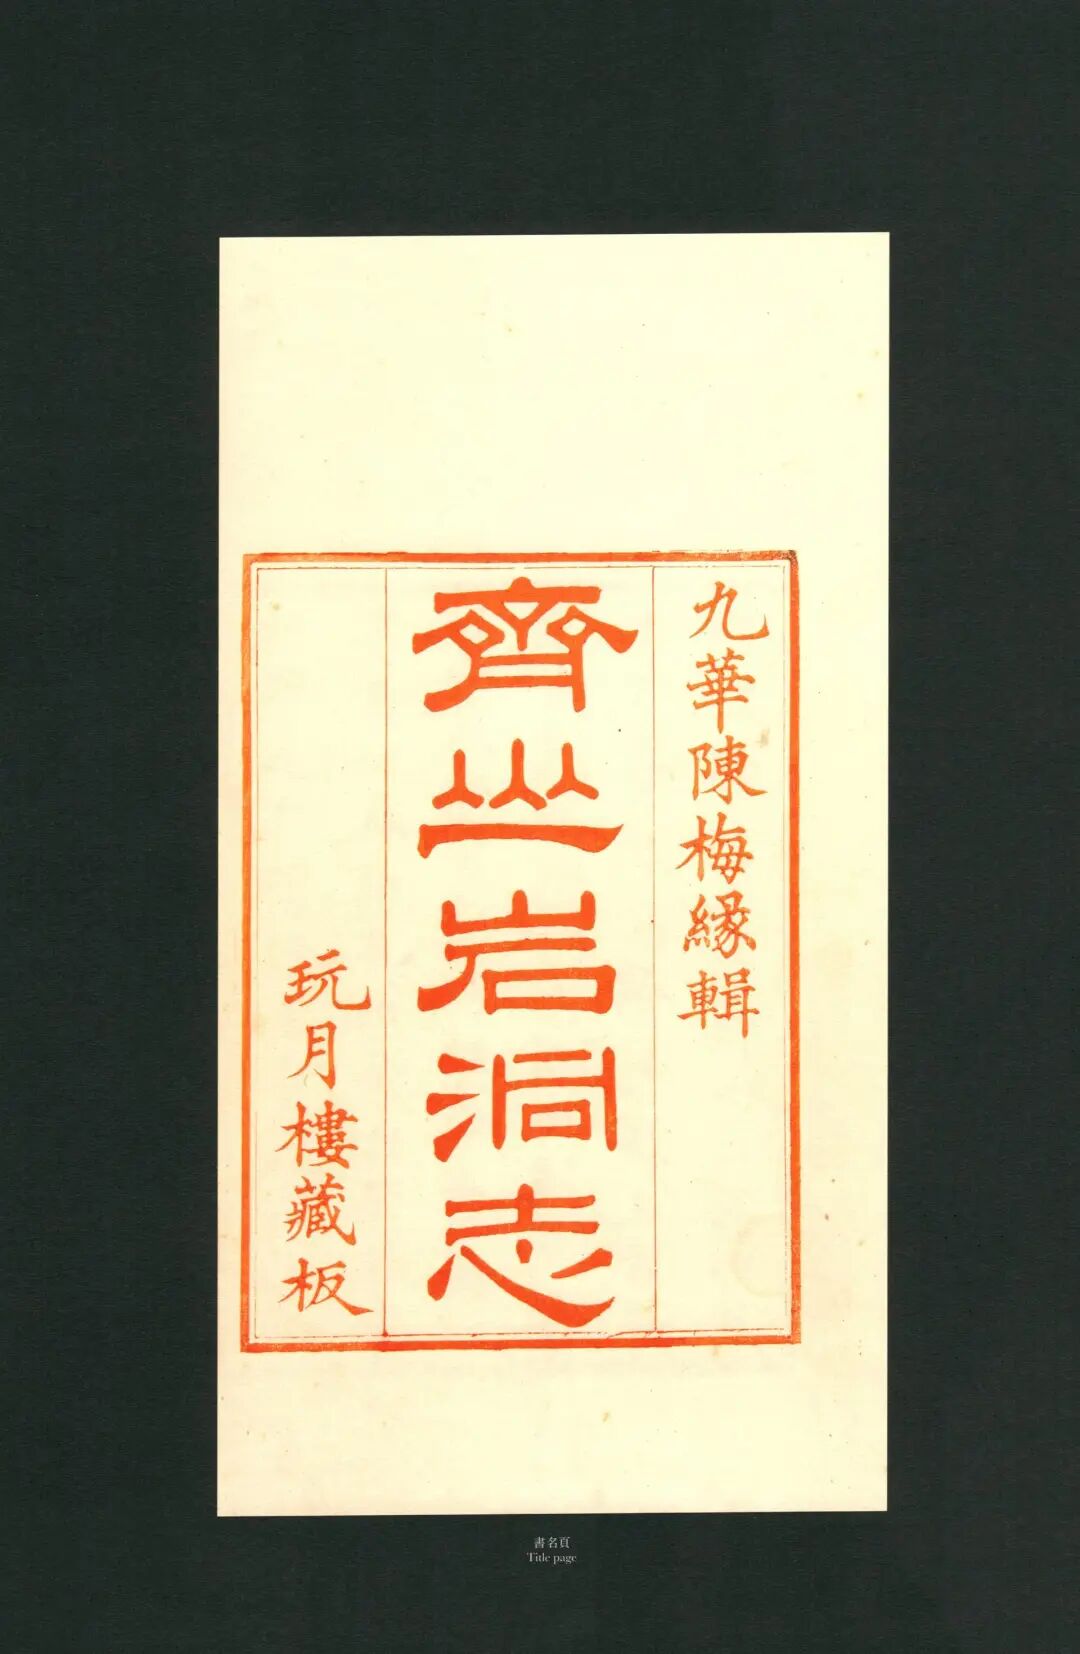 九華陳梅緣輯
齊山岩洞志
玩月樓藏板
書名頁
Title page